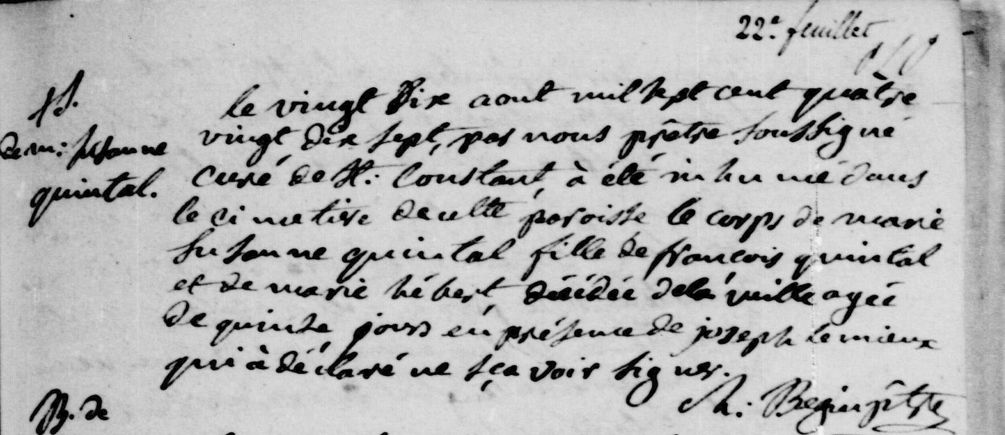 22e feuillet
S.
de m: susanne
quintal.
le vingt Six aout mil sept cent quàtre
vingt dix sept, par nous prêtre soussigné
curé de St: Constant, à élé inhumé dans
le cimetière de cette paroisse le corps de marie
susanne quintal fille de françois quintal
et de marie hébert, décédée de la veille agée
de quinse jours en présence de joseph lemieux
qui à déclaré ne sçavoir signer.
Ch: Begin ptre
B. de